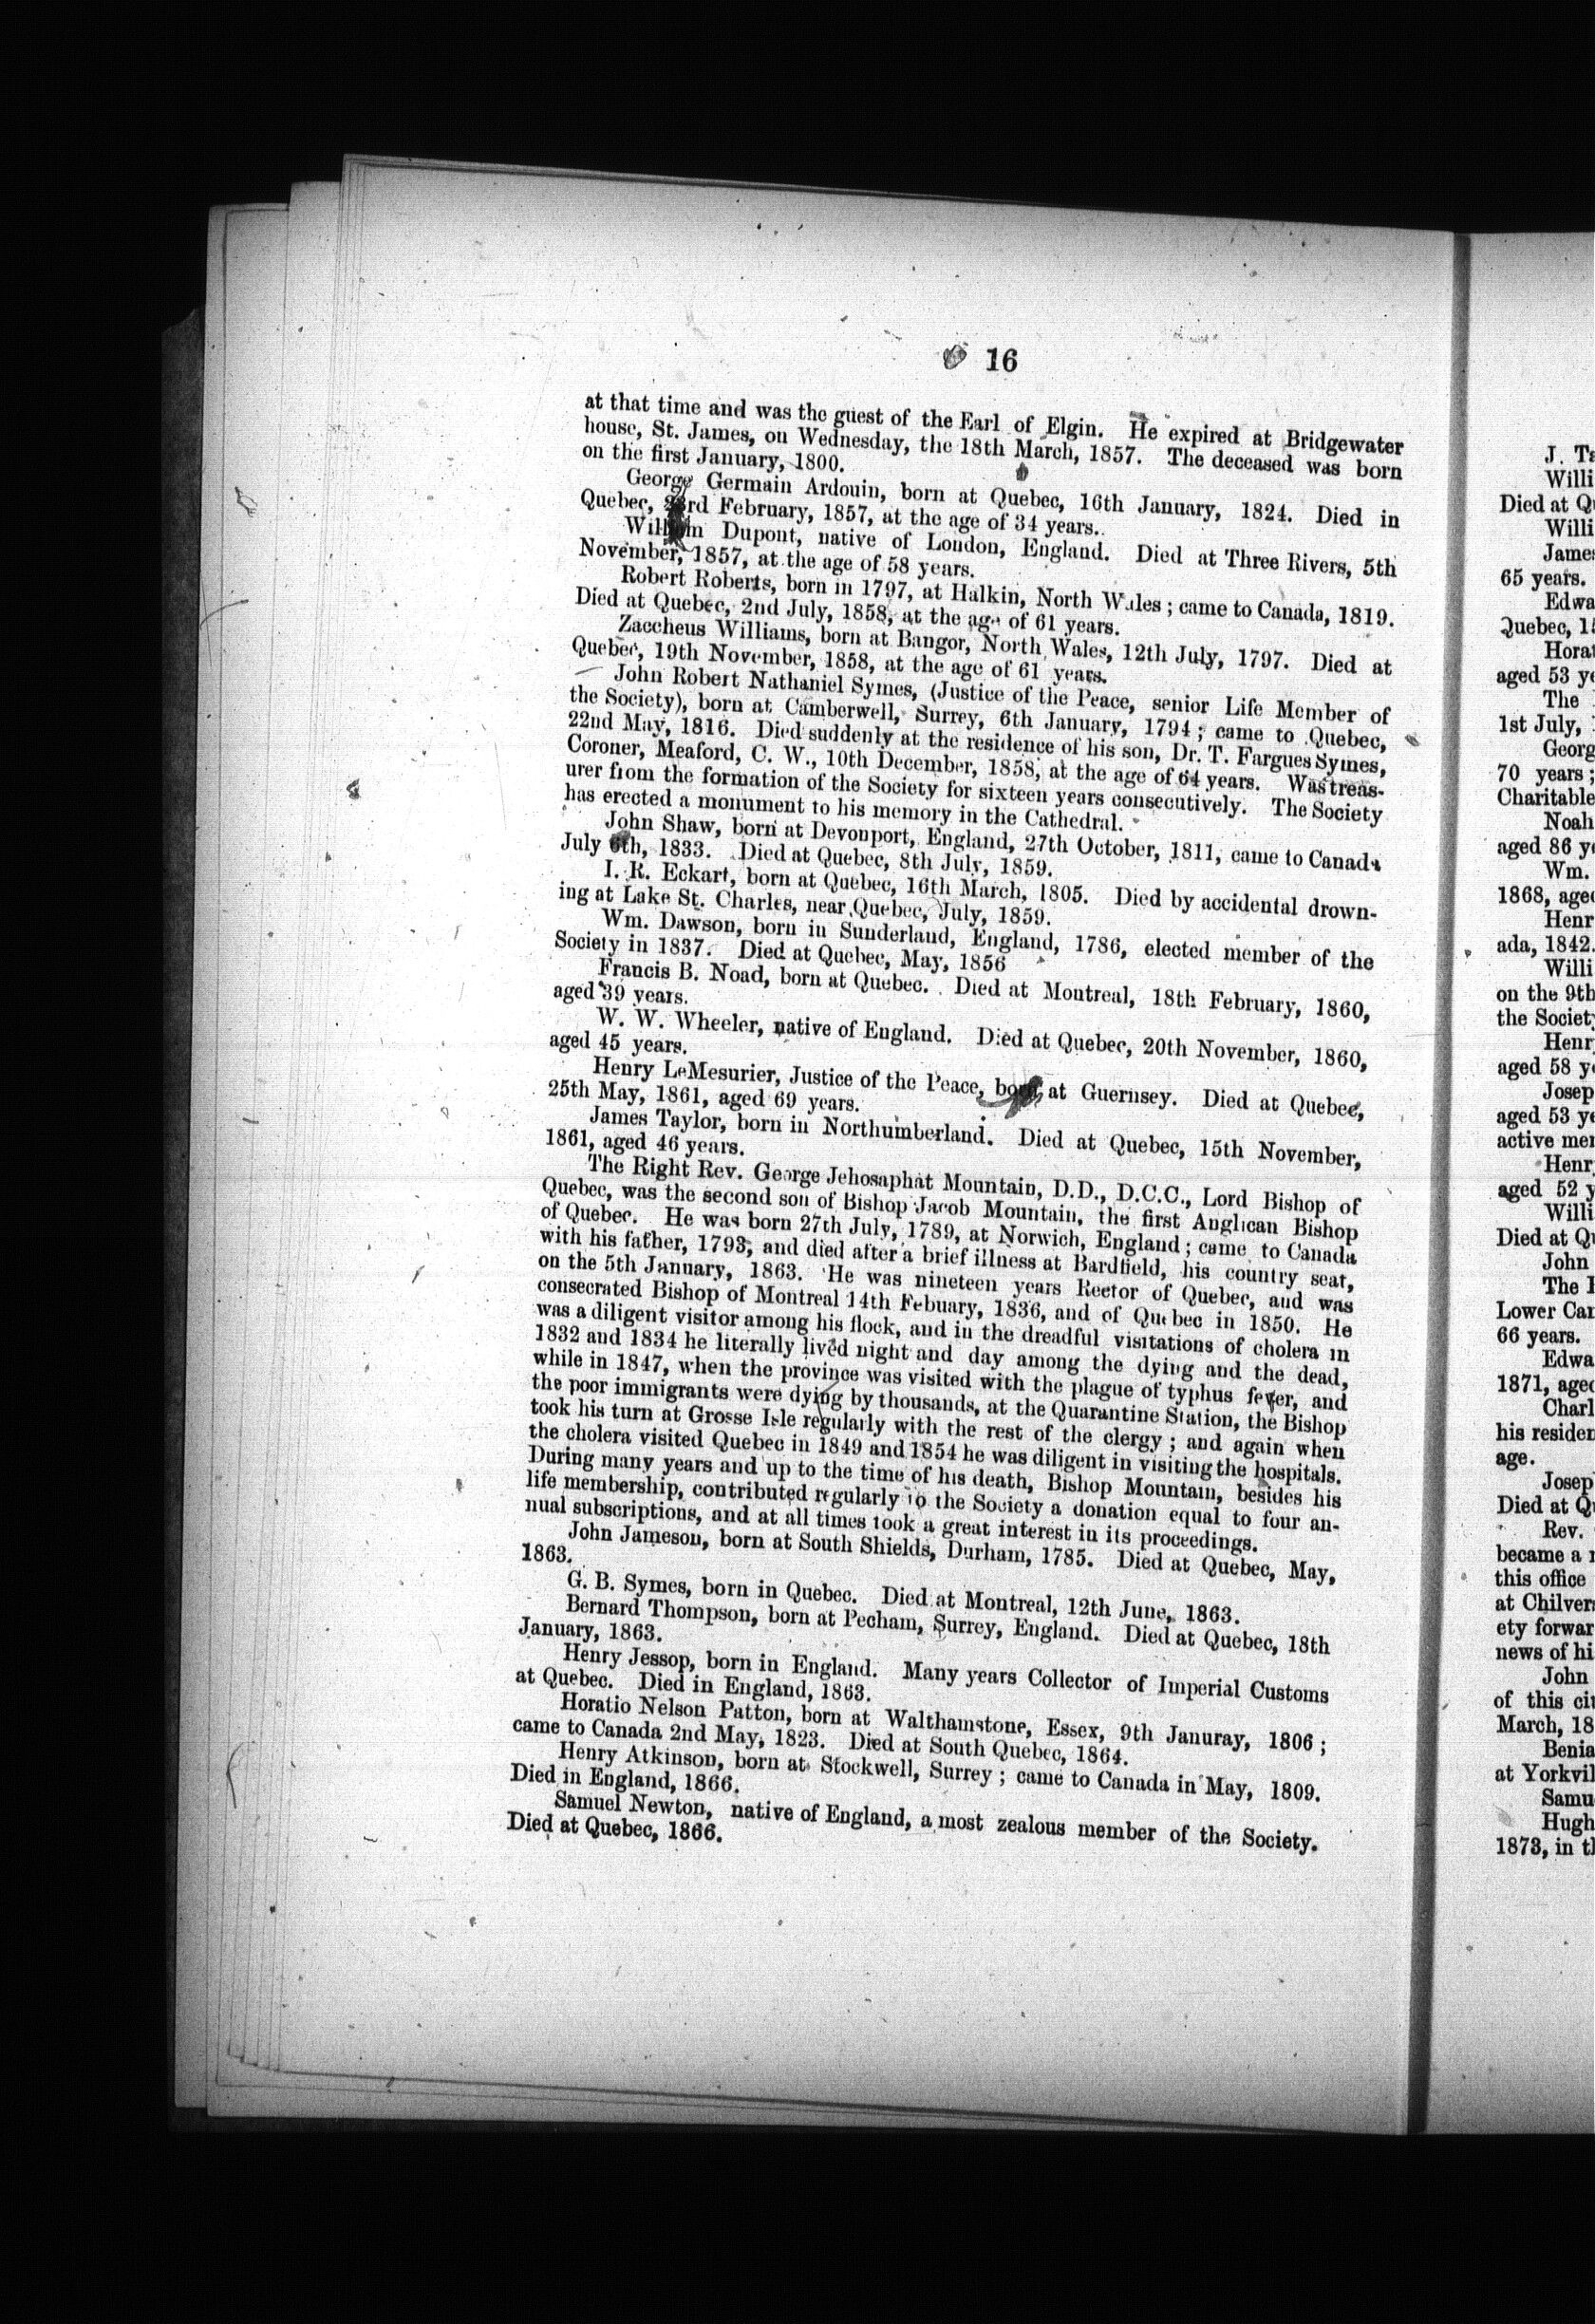 16
at that time and was the guest of the Earl of Elgin. He expired at Bridgewater
house, St. James, on Wednesday, the 18th March, 1857. The deceased was born
on the first January, 1800.
George Germain Ardouin, born at Quebec, 16th January, 1824. Died in
Quebec, 23rd February, 1857, at the age of 34 years.
William Dupont, native of London, England. Died at Three Rivers, 5th
November, 1857, at the age of 58 years.
Robert Roberts, born in 1797, at Halkin, North Wales; came to Canada, 1819.
Died at Quebec, 2nd July, 1858, at the age of 61 years.
Zaccheus Williams, born at Bangor, North Wales, 12th July, 1797. Died at
Quebec, 19th November, 1858, at the age of 61 years.
John Robert Nathaniel Symes, (Justice of the Peace, senior Life Member of
the Society), born at Camberwell, Surrey, 6th January, 1794; came to Quebec,
22nd May, 1816. Died suddenly at the residence of his son, Dr. T. Fargues Symes,
Coroner, Meaford, C. W., 10th December, 1858, at the age of 64 years. Was treas-
urer from the formation of the Society for sixteen years consecutively. The Society
has erected a monument to his memory in the Cathedral.
John Shaw, born at Devonport, England, 27th October, 1811, came to Canada
July 6th, 1833. Died at Quebec, 8th July, 1859.
I. R. Eckart, born at Quebec, 16th March, 1805. Died by accidental drown-
ing at Lake St. Charles, near Quebec, July, 1859.
Wm. Dawson, born in Sunderland, England, 1786, elected member of the
Society in 1837. Died at Quebec, May, 1856
Francis B. Noad, born at Quebec. Died at Montreal, 18th February, 1860,
aged 39 years.
W. W. Wheeler, native of England. Died at Quebec, 20th November, 1860,
aged 45 years.
Henry LeMesurier, Justice of the Peace, born at Guernsey. Died at Quebec,
25th May, 1861, aged 69 years.
James Taylor, born in Northumberland. Died at Quebec, 15th November,
1861, aged 46 years.
The Right Rev. George Jehosaphat Mountain, D.D., D.C.C., Lord Bishop of
Quebec, was the second son of Bishop Jacob Mountain, the first Anglican Bishop
of Quebec. He was born 27th July, 1789, at Norwich, England; came to Canada
with his father, 1793, and died after a brief illness at Bardfield, his country seat,
on the 5th January, 1863. He was nineteen years Rector of Quebec, and was
consecrated Bishop of Montreal 14th Febuary, 1836, and of Quebec in 1850. He
was a diligent visitor among his flock, and in the dreadful visitations of cholera in
1832 and 1834 he literally lived night and day among the dying and the dead,
while in 1847, when the province was visited with the plague of typhus fever, and
the poor immigrants were dying by thousands, at the Quarantine Station, the Bishop
took his turn at Grosse Isle regularly with the rest of the clergy; and again when
the cholera visited Quebec in 1849 and 1854 he was diligent in visiting the hospitals.
During many years and up to the time of his death, Bishop Mountain, besides his
life membership, contributed regularly to the Society a donation equal to four an-
nual subscriptions, and at all times took a great interest in its proceedings.
John Jameson, born at South Shields, Durham, 1785. Died at Quebec, May,
1863.
G. B. Symes, born in Quebec. Died at Montreal, 12th June, 1863.
Bernard Thompson, born at Pecham, Surrey, England. Died at Quebec, 18th
January, 1863.
Henry Jessop, born in England. Many years Collector of Imperial Customs
at Quebec. Died in England, 1863.
Horatio Nelson Patton, born at Walthamstone, Essex, 9th Januray, 1806;
came to Canada 2nd May, 1823. Died at South Quebec, 1864.
Henry Atkinson, born at Stockwell, Surrey; came to Canada in May, 1809.
Died in England, 1866.
Samuel Newton, native of England, a most zealous member of the Society.
Died at Quebec, 1866.
J. Ta
Willi
Died at Qu
Willi
James
65 years.
Edwa
Quebec, 15
Horat
aged 53 ye
The
1st July,
Georg
70 years;
Charitable
Noah
aged 86 ye
Wm.
1868, aged
Henr
ada, 1842.
Willi
on the 9th
the Society
Henr
aged 58 ye
Josep
aged 53 ye
active mem
Henr
aged 52 y
Willi
Died at Qu
John
The
Lower Can
66 years.
Edwa
1871, aged
Charl
his residen
age.
Josep
Died at Qu
Rev.
became a
this office
at Chilver
ety forwar
news of hi
John
of this cit
March, 18
Benia
at Yorkvil
Samu
Hugh
1873, in t